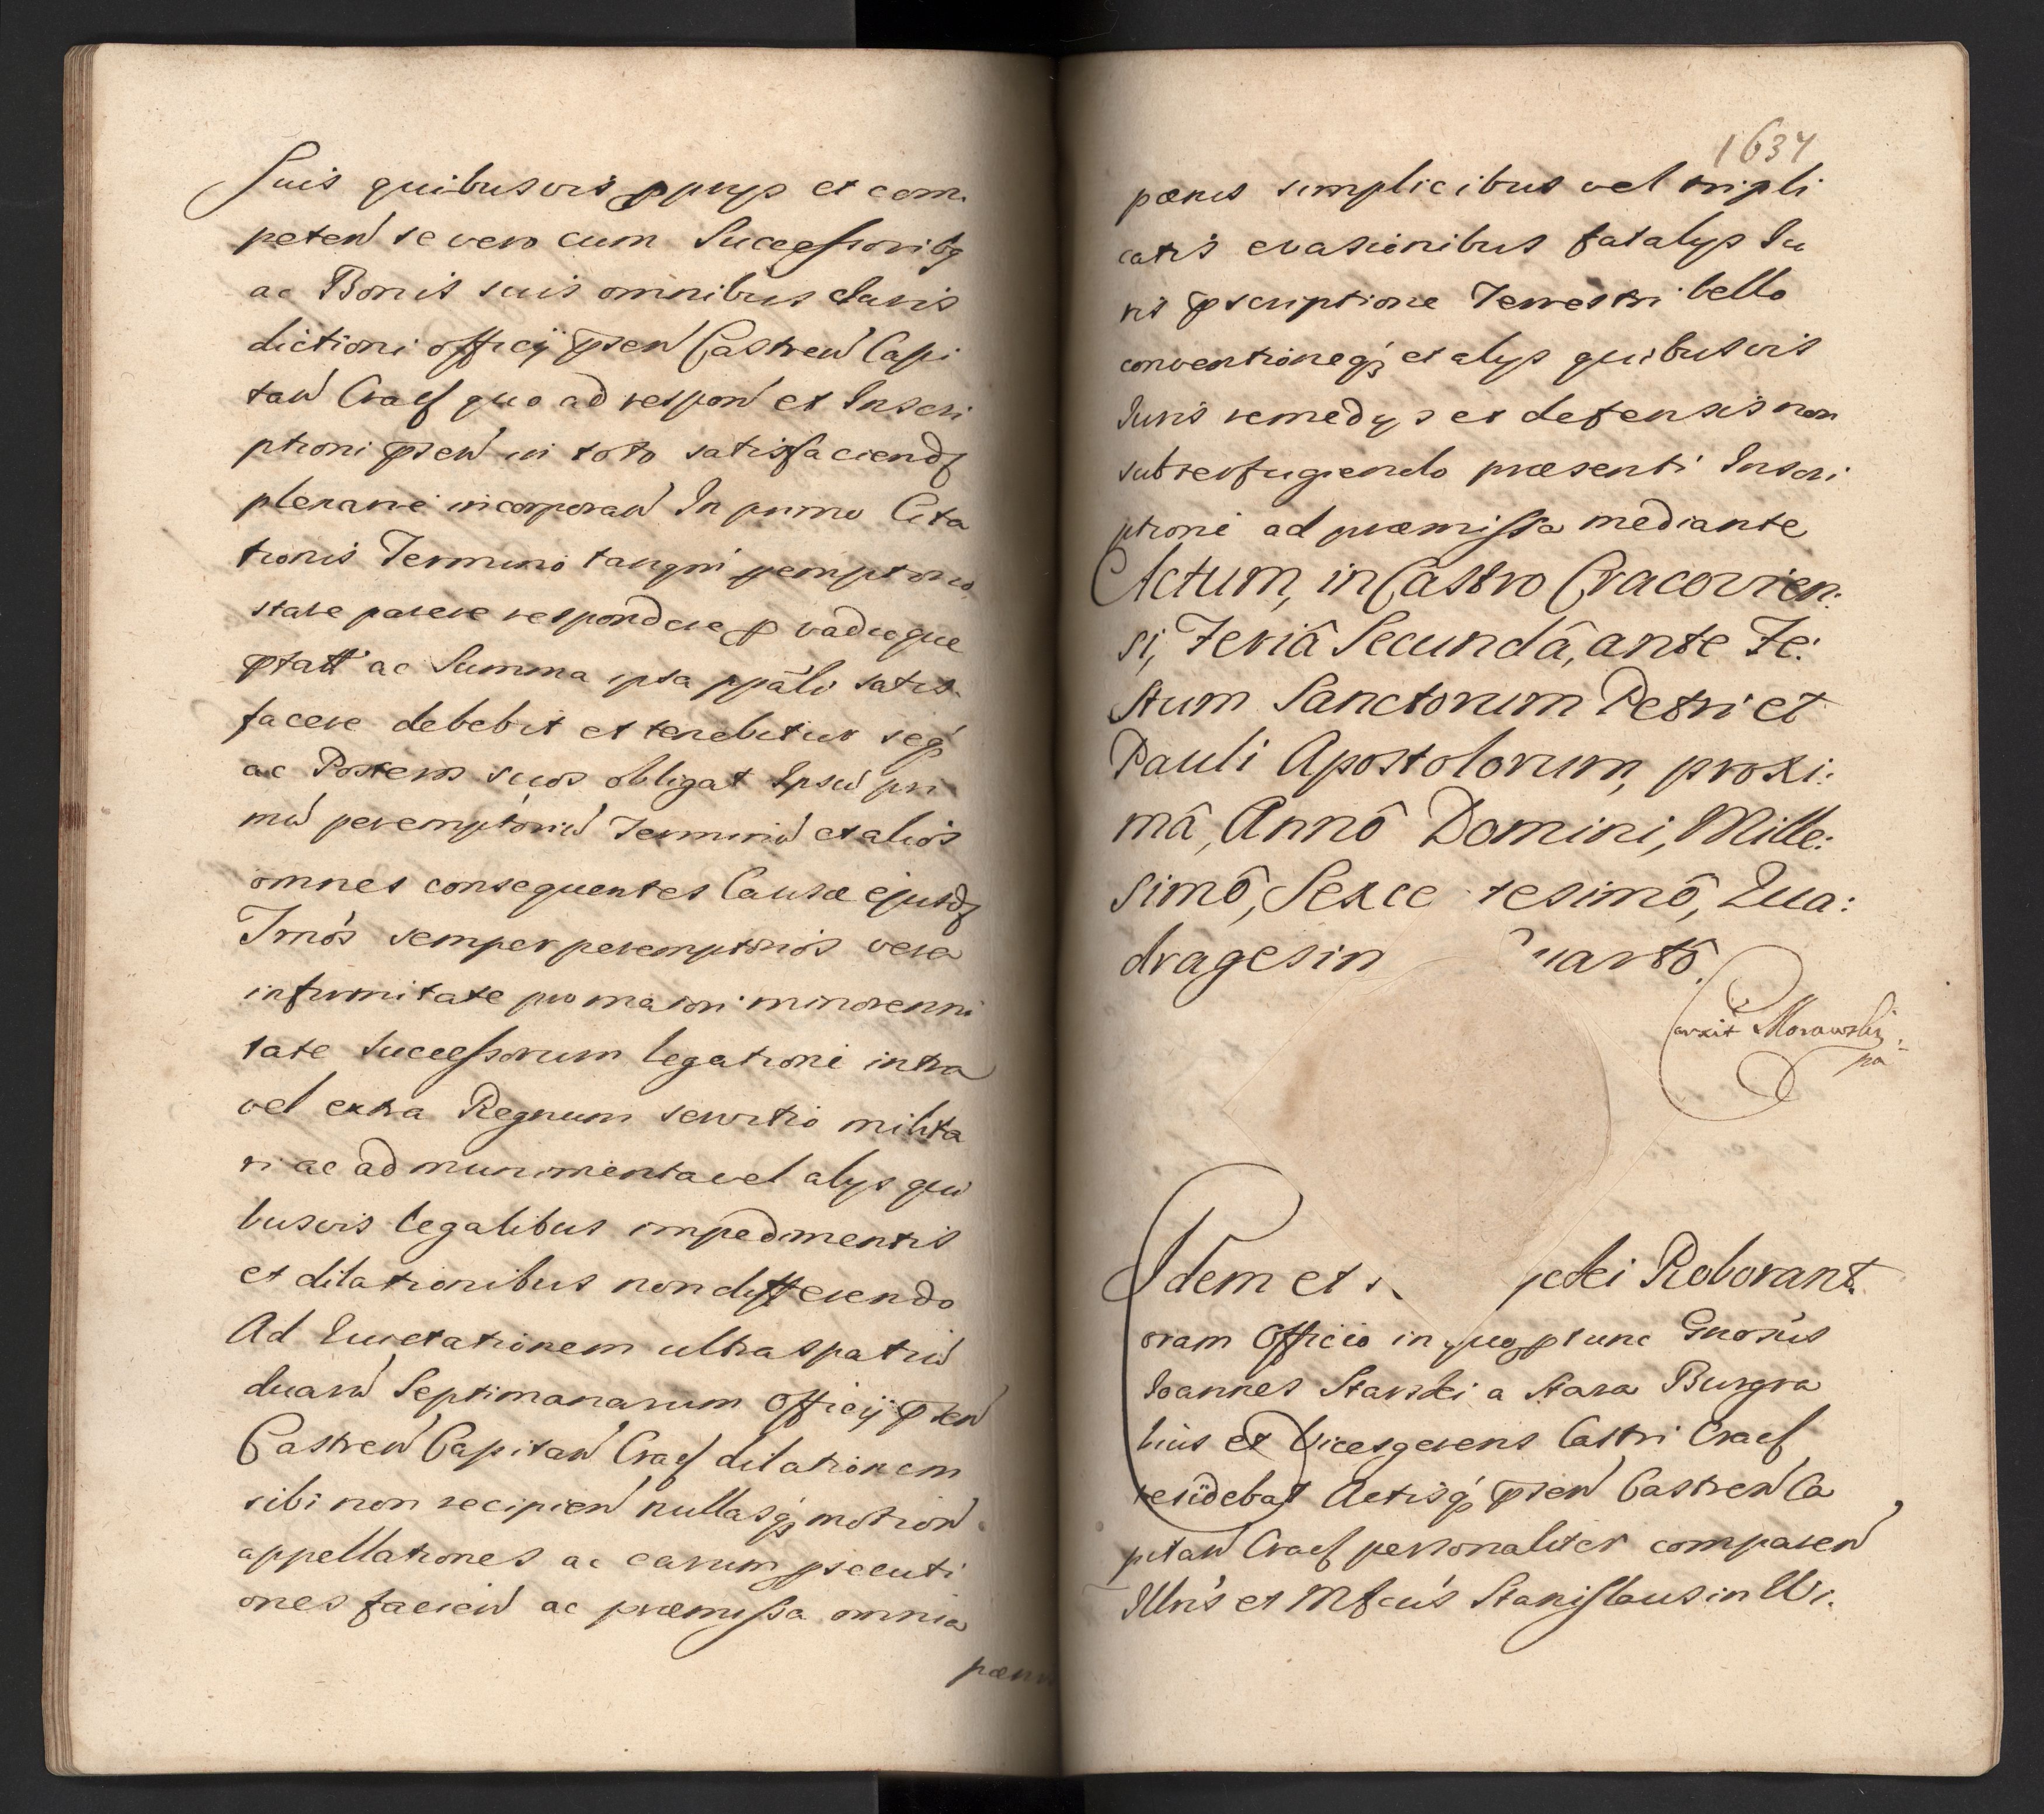 Suis quibusvis pprys et com
peten se vero cum Sucessoribq
ac Bonis suis omnibus Iuris
dictioni officij pnsen Castren Capi
tan Crac quo ad respon et Inscri
ptioni pnsen in toto satisfaciendz
plenarie incorporan In primo Cita
tionis Termino tanqm pemptorio
stare parere respondere p vadioque
ptatt ac Summa ipsa ppali satis
facere debebit et tenebitur seq
ac Posteros suos obligat Ipsu pri
mu peremptoriu Terminu et alios
omnes consequentes Causæ ejusdz
Trnos semper peremptorios vera
infirmitate pro maiori minorenni
tate Successorum legatione intra
vel extra Regnum servitio milita
ri ac ad munimenta vel alys qui
busvis legalibus impedimentis
et dilationibus non differendo
Ad Euictationem ultra spatiu
duaru Septimanarum Officij pnsen
Castren Capitan Crac dilationem
sibi non recipien nullasq motion
appellationes ac earum psecuti
ones facien ac præmissa omnia
pœnis
1634
pœnis simplicibus vel tripli
catis evasionibus fatalys Iu
ris pscriptione Terrestri bello
conventioneq et alys quibusvis
Iuris remedys et defensis non
subterfugiendo præsenti Inscri
ptione ad præmissa mediante
Actum, in Castro Cracovien:
si, Feriâ Secundâ, ante Fe:
stum Sanctorum Petri et
Pauli Apostolorum, proxi:
mâ, Annô Domini, Mille:
simô, Sexce tesimô, Qua:
dragesim uartô.
Morawski
pa
Idem et Roborant.
oram Officio in quo ptunc Gnosus
Ioannes Starski a Stara Burgra
bius et Vicesgerens Castri Crac
residebat Actisq pnsen Castren Ca
pitan Crac personaliter comparen
Illris et Mfcus Stanislaus in Wi.